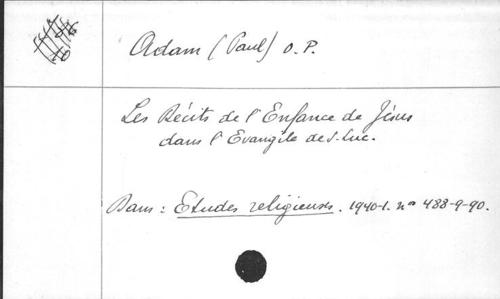 Adam (Paul) O.P.
Les Récits de l'Enfance de Jésus
dans l'Evangile de S. Luc.
Dans : Etudes religieuses. 1940-1. nos 488-9-90.